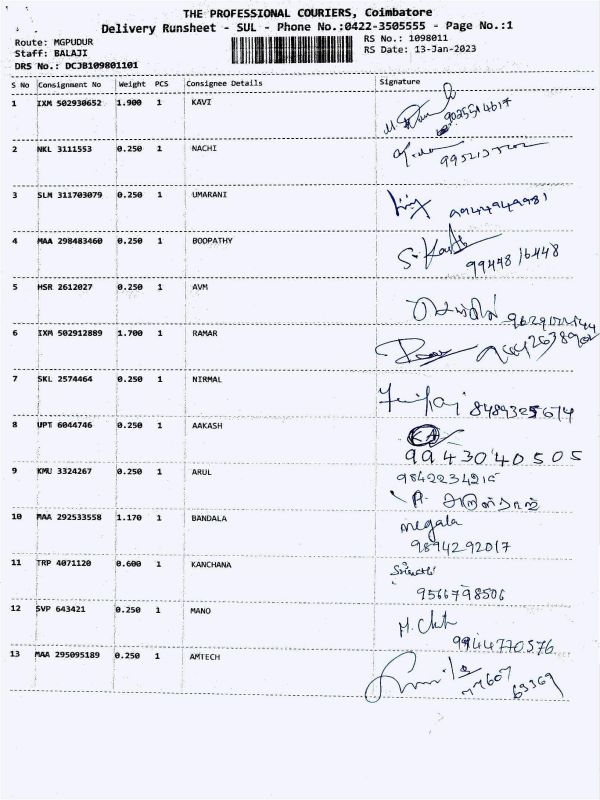 THE PROFESSIONAL COURIERS, Coimbatore
Delivery Runsheet - SUL - Phone No.:0422-3505555 - Page No.:1
Route: MGPUDUR
RS No.: 1098011
Staff: BALAJI
RS Date: 13-Jan-2023
DRS No.: DCJB109801101
S No Consignment No Weight PCS Consignee Details Signature
1 IXM 502930652 1.900 1 KAVI
9025514617
2 NKL 3111553 0.250 1 NACHI
3 SLM 311703079 0.250 1 UMARANI
9944949981
4 MAA 298483460 0.250 1 BOOPATHY
9944816448
5 HSR 2612027 0.250 1 AVM
6 IXM 502912889 1.700 1 RAMAR
7 SKL 2574464 0.250 1 NIRMAL
8489325674
8 UPT 6044746 0.250 1 AAKASH
KA
9943040505
9 KMU 3324267 0.250 1 ARUL
9842234215
10 MAA 292533558 1.170 1 BANDALA
megala
9894292017
11 TRP 4071120 0.600 1 KANCHANA
9566798506
12 SVP 643421 0.250 1 MANO
9944770576
13 MAA 295095189 0.250 1 AMTECH
77607
63369